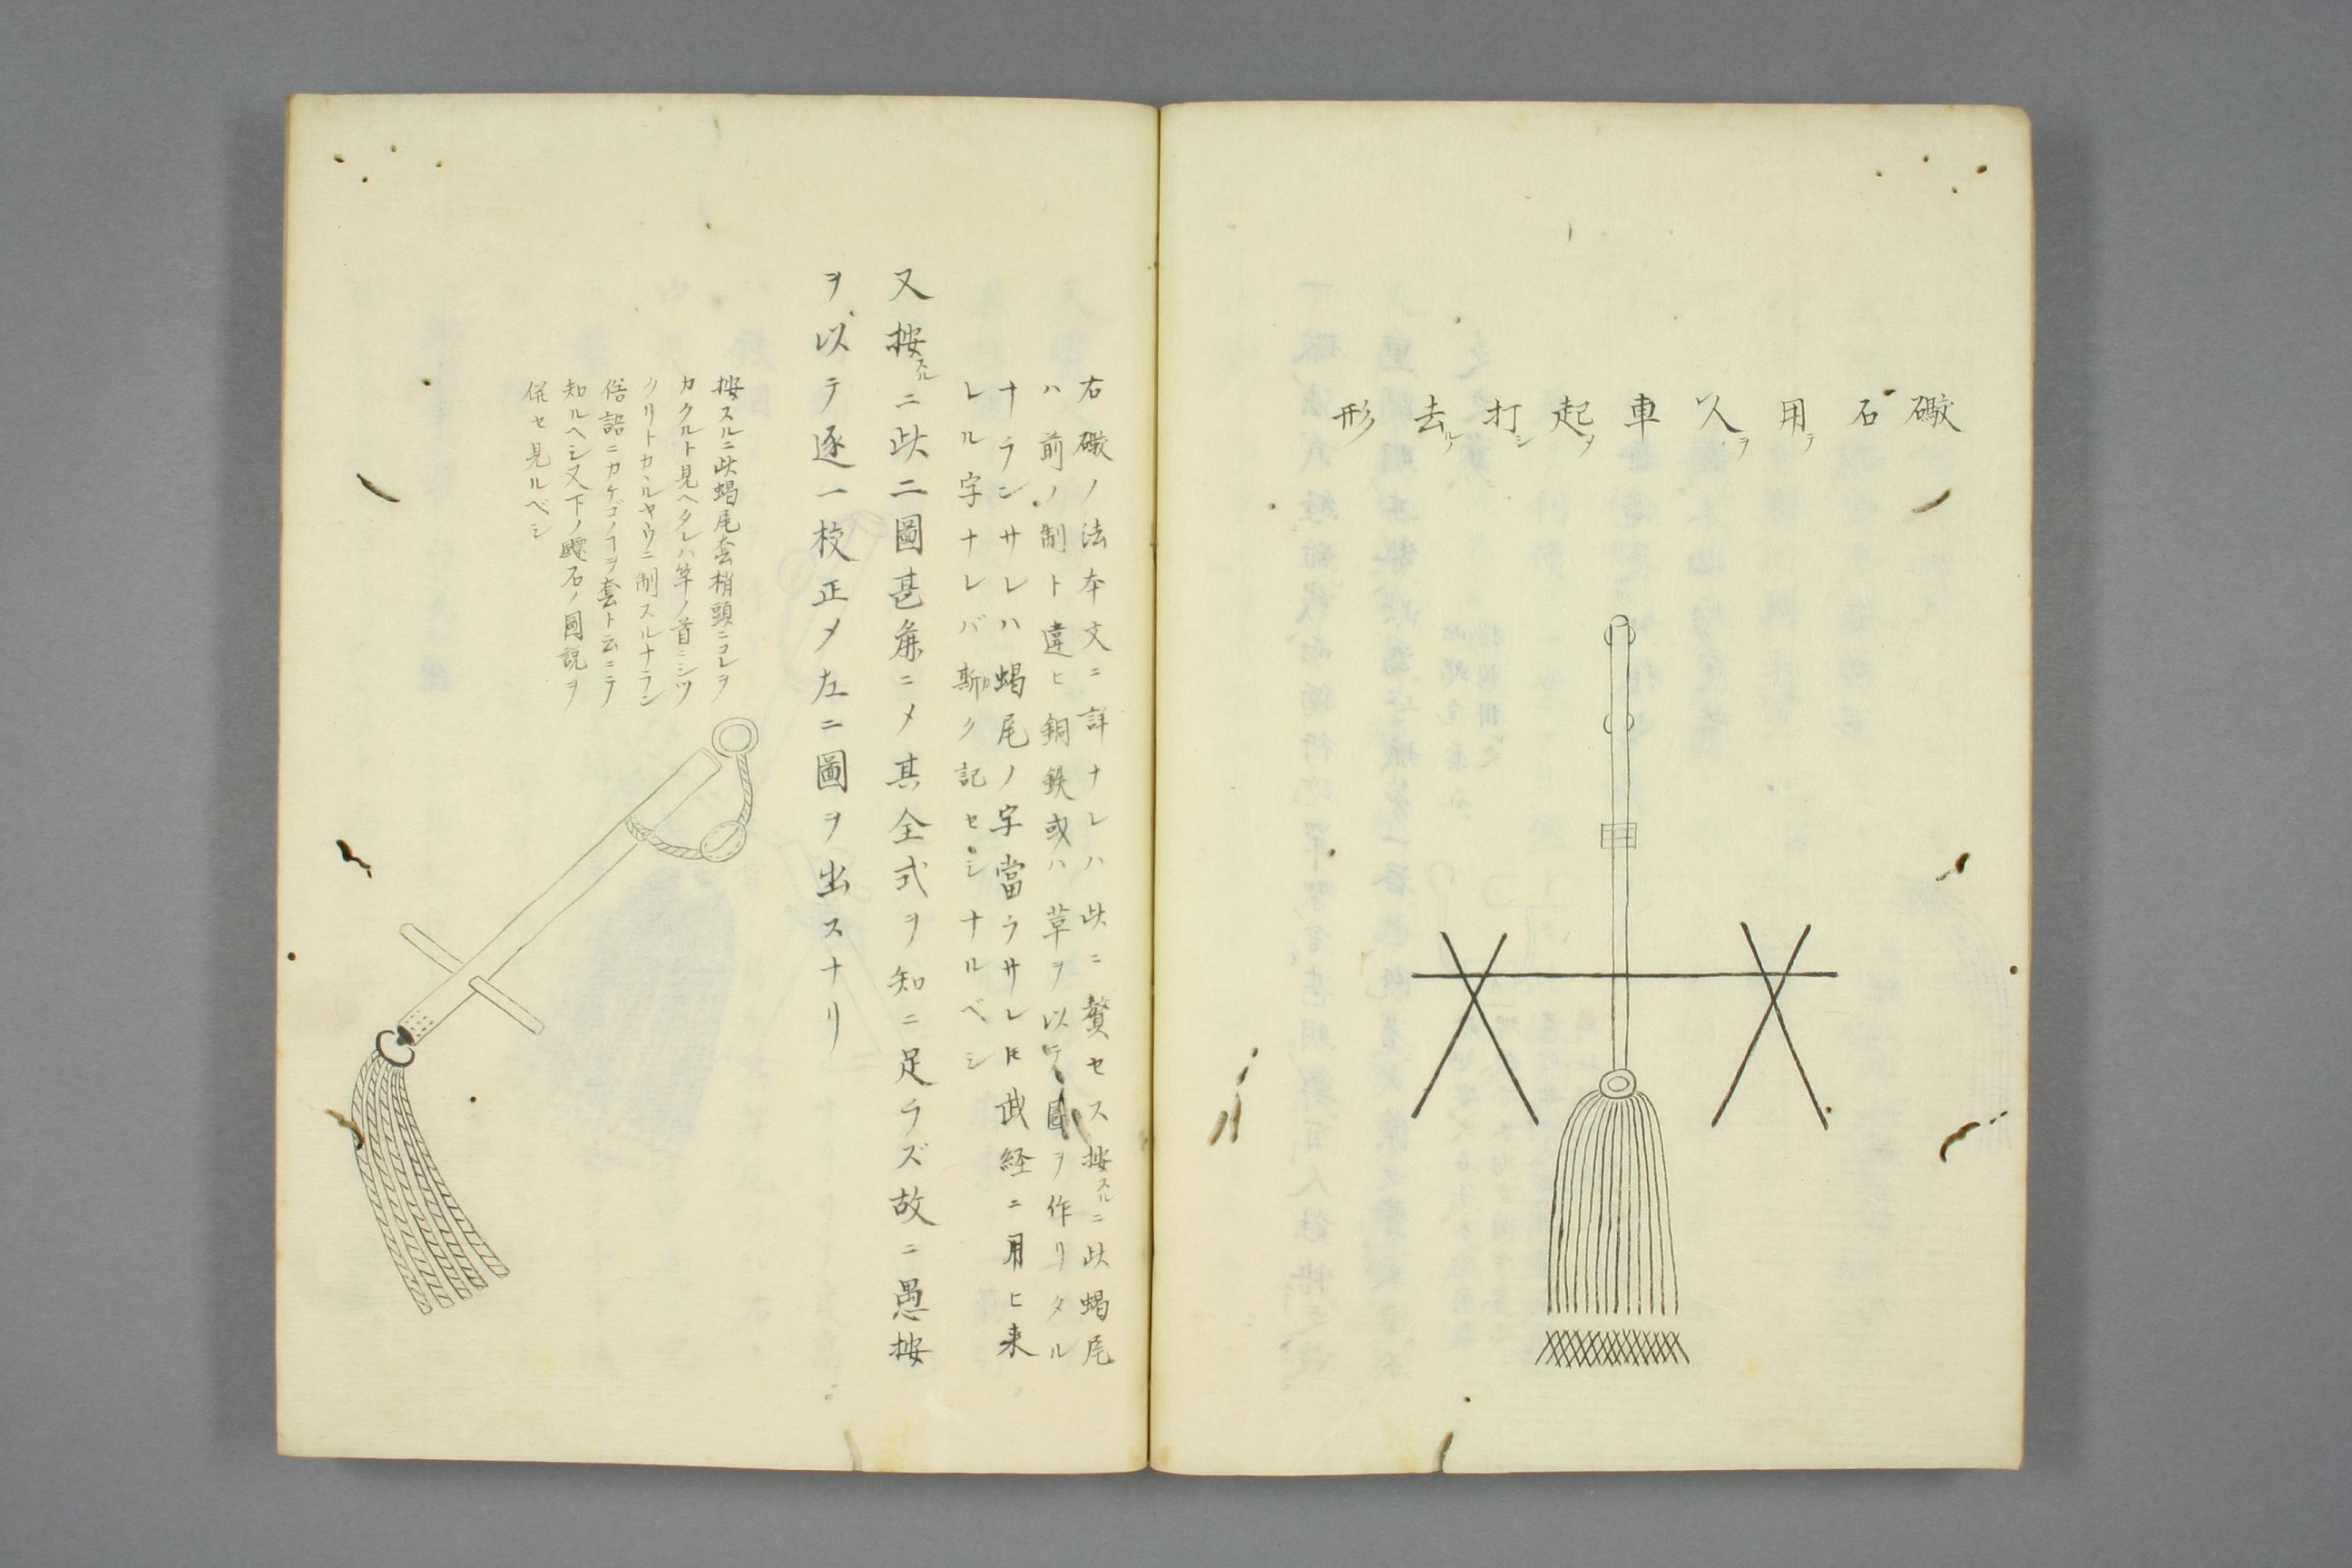 礮石用テ人ヲ車起メ打シ去ル形
右礮ノ法本文ニ詳ナレハ此ニ贅セス按スルニ此蝎尾
ハ前ノ制ト違ヒ銅鉄或ハ草ヲ以テ圓ヲ作リタル
ナランサレハ蝎尾ノ字當ラサレ𪜈武経ニ用ヒ来
レル字ナレバ斯ク記セシナルベシ
又按スルニ此二圖甚麁ニメ其全式ヲ知ニ足ラズ故ニ愚按
ヲ以テ逐一校正メ左ニ圖ヲ出スナリ
按スルニ此蝎尾套梢頭ニコレヲ
カクルト見ヘタレハ竿ノ首ニシツ
クリトカヽルヤウニ制スルナラン
俗語ニカケゴノヿヲ套ト云ニテ
知ルヘシ又下ノ石ノ圖説ヲ
併セ見ルベシ